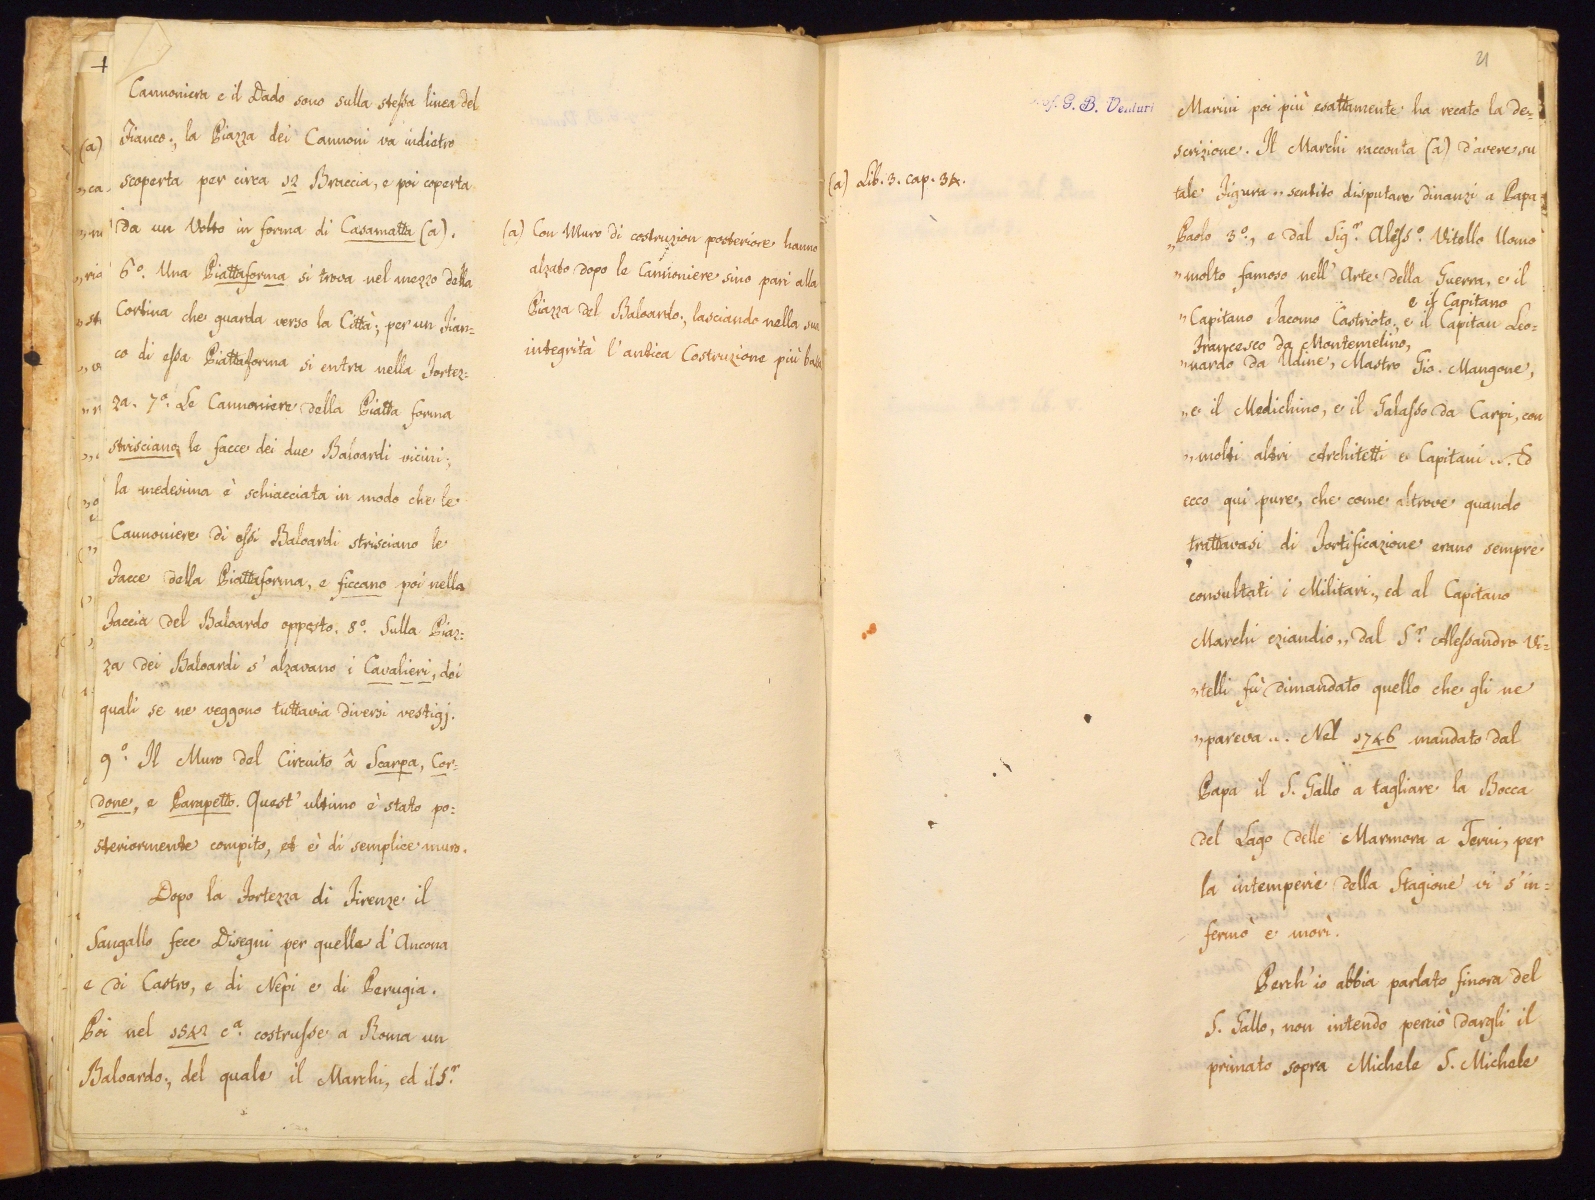 Cannoniera e il Dado sono sulla stessa linea del
Fianco; la Piazza dei Cannoni va indietro
scoperta per circa 12 Braccia, e poi coperta
da un Volto in forma di Casamatta (a).
6º. Una Piattaforma si trova nel mezzo della
Cortina che guarda verso la Città; per un Fian=
co di essa Piattaforma si entra nella Fortez=
za. 7º. Le Cannoniere della Piatta forma
strisciano le facce dei due Baloardi vicini;
la medesima è schiacciata in modo che le
Cannoniere di essi Baloardi strisciano le
Facce della Piattaforma, e ficcano poi nella
Faccia del Baloardo opposto. 8º. Sulla Piaz=
za dei Baloardi s' alzavano i Cavalieri, dei
quali se ne veggono tuttavia diversi vestigj.
9º Il Muro del Circuito à Scarpa, Cor=
done, e Parapetto. Quest' ultimo è stato po=
steriormente compito, et è di semplice muro.
Dopo la Fortezza di Firenze il
Sangallo fece Disegni per quella d' Ancona
e di Castro, e di Nepi e di Perugia.
Poi nel 1542 cª. costrusse a Roma un
Baloardo, del quale il Marchi, ed il Sr.
(a) Con Muro di costruzion posteriore hanno
alzato dopo le Cannoniere sino pari alla
Piazza del Baloardo, lasciando nella sua
integrità l' antica Costruzione più bassa
21
G. B. Venturi
(a) Lib. 3. cap. 34.
Marini poi più esattamente ha recato la de=
scrizione. Il Marchi racconta (a) d'avere su
tale Figura „ sentito disputare dinanzi a Papa
„ Paolo 3º., e dal Sigr. Aless º. Vitello Uomo
„ molto famoso nell' Arte della Guerra, e il
e il Capitano
„ Capitano Jacomo Castrioto, e il Capitan Leo=
Francesco da Montemelino,
„ nardo da Udine, Mastro Gio. Mangone,
„ e il Medichino, e il Galasso da Carpi, con
„ molti altri Architetti e Capitani „. Ed
ecco qui pure, che come altrove quando
trattavasi di Fortificazione erano sempre
consultati i Militari, ed al Capitano
Marchi eziandio „ dal Sr. Alessandro Vi=
„ telli fù dimandato quello che gli ne
„ pareva „. Nel 1746 mandato dal
Papa il S. Gallo a tagliare la Bocca
del Lago delle Marmora a Terni, per
la intemperie della Stagione vi s' in=
fermò e morì.
Perch' io abbia parlato finora del
S. Gallo, non intendo perciò dargli il
primato sopra Michele S. Michele